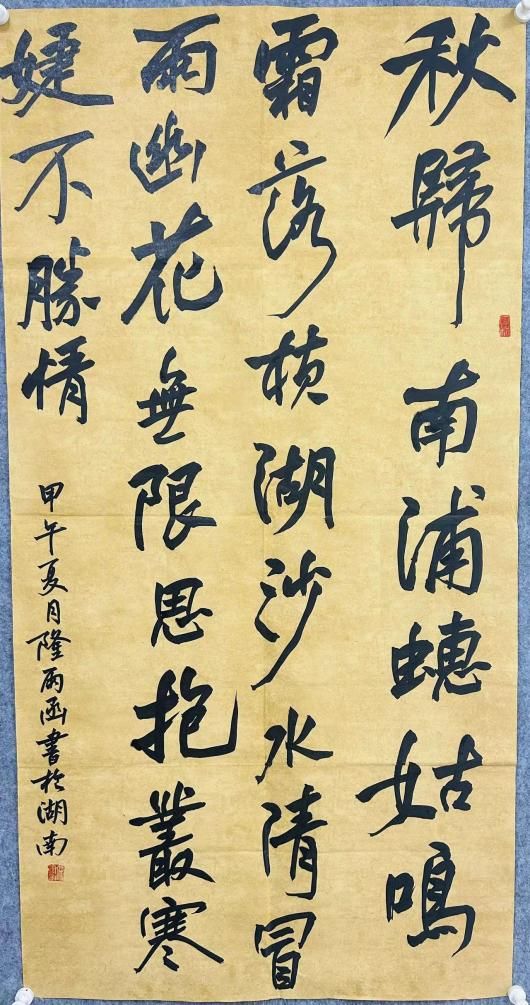 秋歸南浦蟪姑鳴
霜落横湖沙水清冒
雨幽花無限思抱叢寒
婕不勝情
甲午夏月隆雨函書於湖南